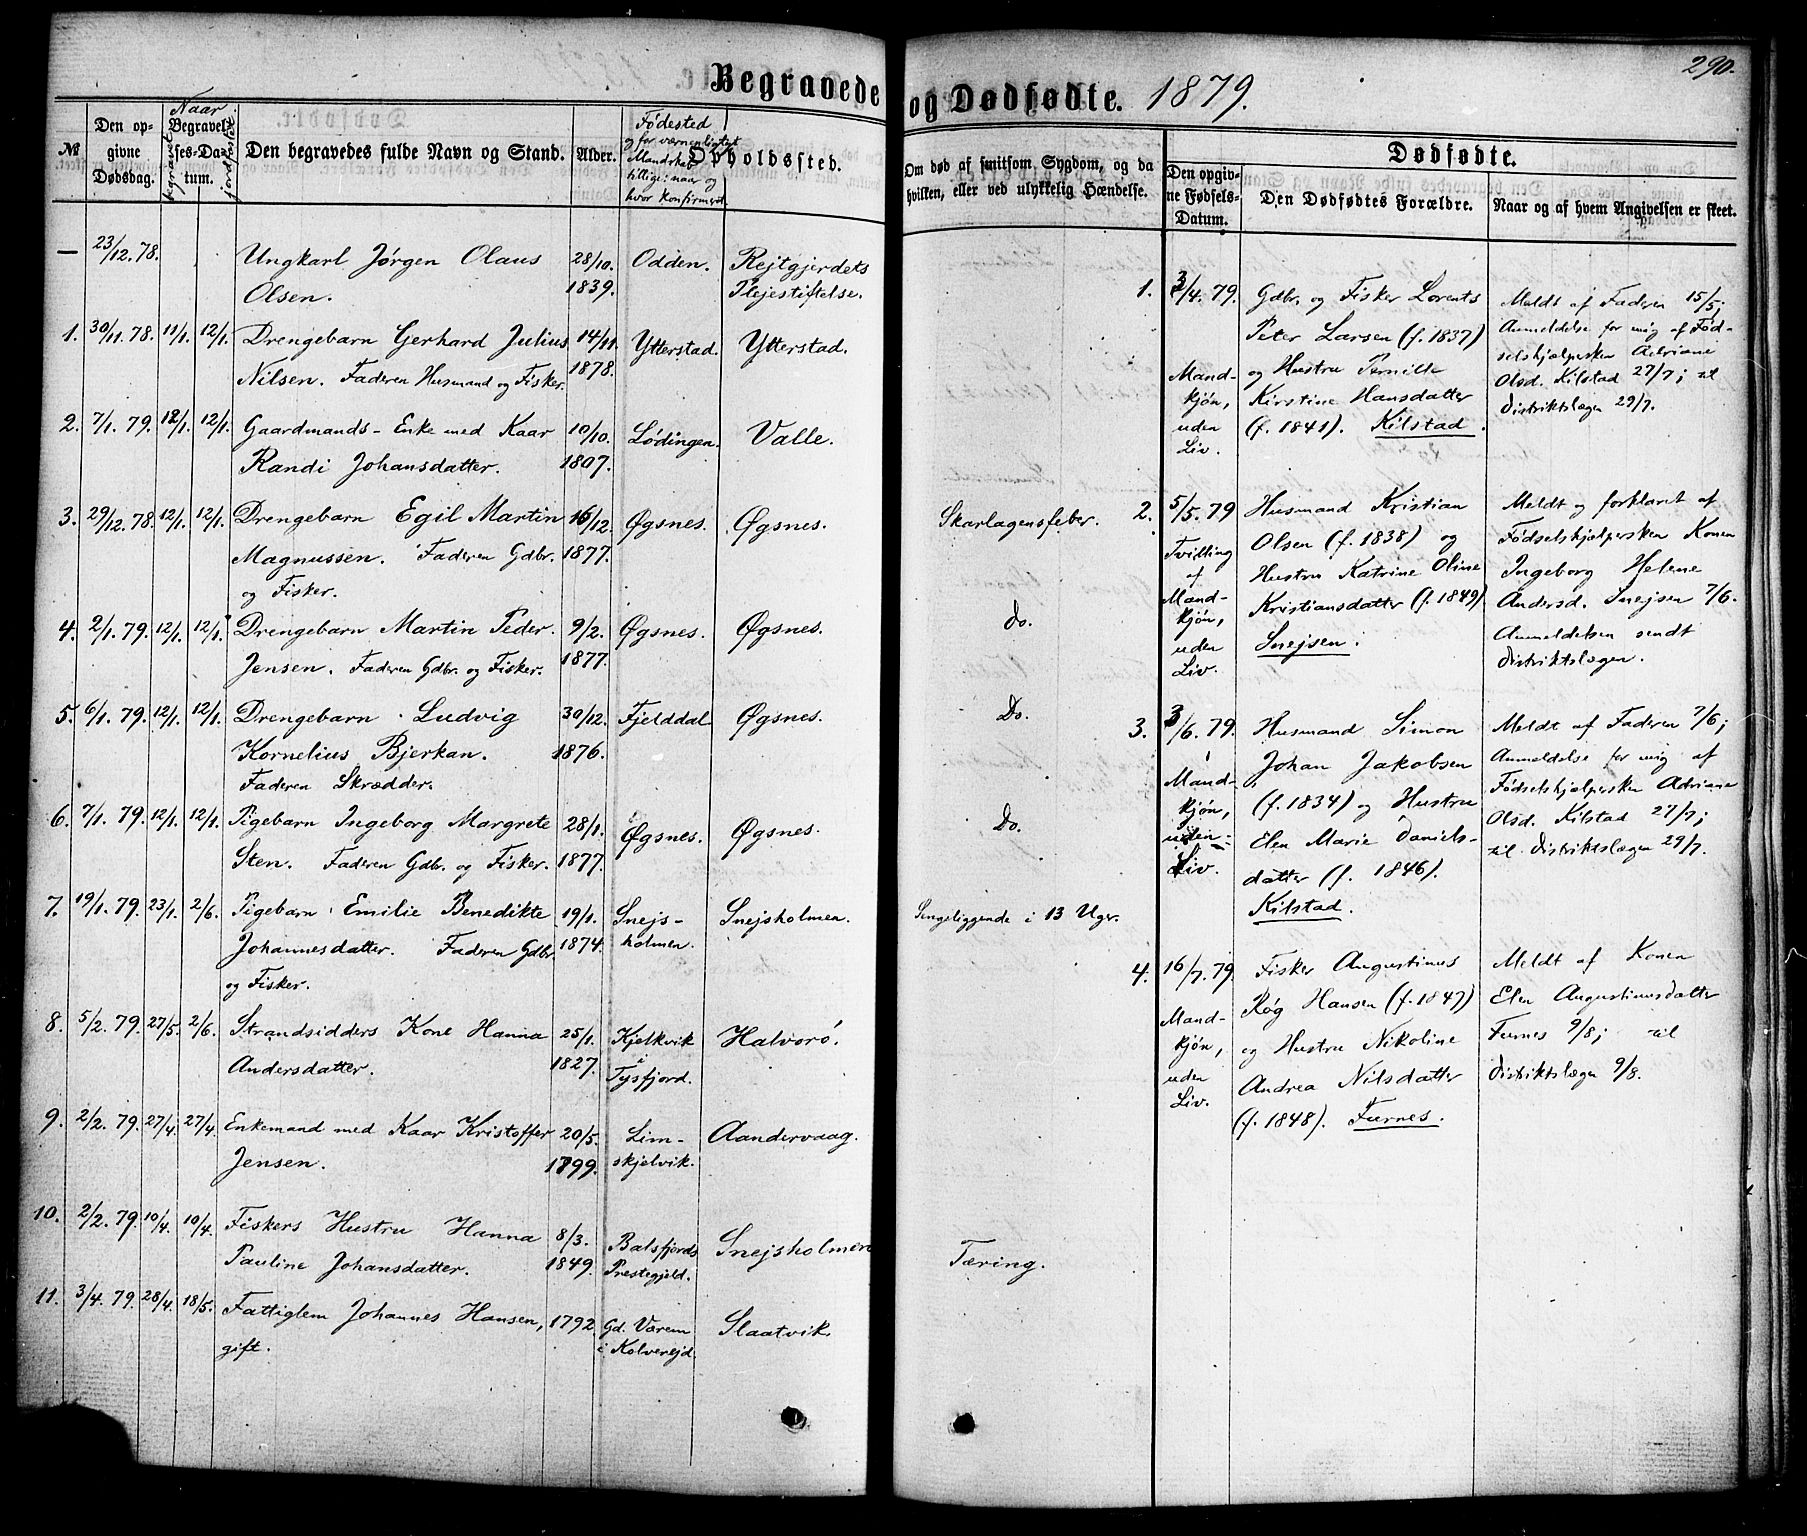 290.
Begravede og Dødfødte. 1879.
№
Den opgivne Dødsdag.
Naar
begravet
Begravelses-Datum.
jordfæstet
Den begravedes fulde Navn og Stand.
Alder.
Fødested
og for værnepligtigt
Mandskab
tillige: naar og
hvor konfirmeret.
Opholdssted.
Om død af smitsom Sygdom, og da hvilken, eller ved ulykkelig Hændelse.
Dødfødte.
Den opgivne Fødsels-Datum.
Den Dødfødtes Forældre.
Naar og af hvem Angivelsen er skeet.
— 23/12. 78. Ungkarl Jørgen Olaus 28/10. Odden. Rejtgjerdets
Olsen. 1839. Plejestiftelse.
1. 30/11. 78. 11/1. 12/1. Drengebarn Gerhard Julius 14/11. Ytterstad. Ytterstad.
Nilsen. Faderen Husmand og Fisker. 1878.
2. 7/1. 79. 12/1. 12/1. Gaardmands-Enke med Kaar 10/10. Lødingen. Valle.
Randi Johansdatter. 1807.
3. 29/12. 78. 12/1. 12/1. Drengebarn Egil Martin 16/12. Øgsnes. Øgsnes. Skarlagensfeber.
Magnussen. Faderen Gdbr. 1877.
og Fisker.
4. 2/1. 79. 12/1. 12/1. Drengebarn Martin Peder 9/2. Øgsnes. Øgsnes. Do.
Jensen. Faderen Gdbr. og Fisker. 1877.
5. 6/1. 79. 12/1. 12/1. Drengebarn Ludvig 30/12. Fjelddal Øgsnes. Do.
Kornelius Bjerkan. 1876.
Faderen Skrædder.
6. 7/1. 79. 12/1. 12/1. Pigebarn Ingeborg Margrete 28/1. Øgsnes. Øgsnes. Do.
Sten. Faderen Gdbr. og Fisker. 1877.
7. 19/1. 79. 23/1. 2/6. Pigebarn Emilie Benedikte 19/1. Snejs- Snejsholmen. Sengeliggende i 13 Uger.
Johannesdatter. Faderen Gdbr. 1874. holmen.
og Fisker.
8. 5/2. 79. 27/5. 2/6. Strandsidders Kone Hanna 25/1. Kjelkvik Halvorö.
Andersdatter. 1827. i Tysfjord.
9. 2/2. 79. 27/4. 27/4. Enkemand med Kaar Kristoffer 20/5. Lim- Aandervaag.
Jensen. 1799. skjelvik.
10. 2/2. 79. 10/4. 10/4. Fiskers Hustru Hanna 8/3. Balsfjords Snejsholmen Tæring.
Pauline Johansdatter. 1849. Prestegjeld.
11. 3/4. 79. 28/4. 18/5. Fattiglem Johannes Hansen, 1792. Gd. Værem Slaatvik.
gift. i Kolverejd.
1. 3/4. 79. Gdbr. og Fisker Lorents Meldt af Faderen 15/5;
Peter Larsen (f. 1837) Anmeldelse for mig af Fød-
Mand- og Hustru Pernille selshjælpersken Adriane
kjøn, Kirstine Hansdatter Olsd. Kilstad 27/7; til
uden (f. 1841). Kilstad. Distriktslægen 29/7.
Liv.
2. 5/5. 79 Husmand Kristian Meldt og forklaret af
Tvilling Olsen (f. 1838) og Fødselshjælpersken Konen
af Hustru Katrine Oline Ingeborg Helene
Mand- Kristiansdatter (f. 1849) Andersd. Snejsen 7/6.
kjøn, Snejsen. Anmeldelsen sendt
uden Distriktslægen.
Liv.
3. 3/6. 79. Husmand Simon Meldt af Faderen 7/6;
Johan Jakobsen Anmeldelse for mig af
Mand- (f. 1834) og Hustru Fødselshjælpersken Adriane
kjøn, Elen Marie Daniels- Olsd. Kilstad 27/7;
uden datter (f. 1846). til Distriktslægen 29/7.
Liv. Kilstad.
4. 16/7. 79. Fisker Augustinus Meldt af Konen
Røg Hansen (f. 1847) Elen Augustinusdatter
Mand- og Hustru Nikoline Furnes 9/8; til
kjøn, Andrea Nilsdatter Distriktslægen 9/8.
uden (f. 1848). Furnes.
Liv.